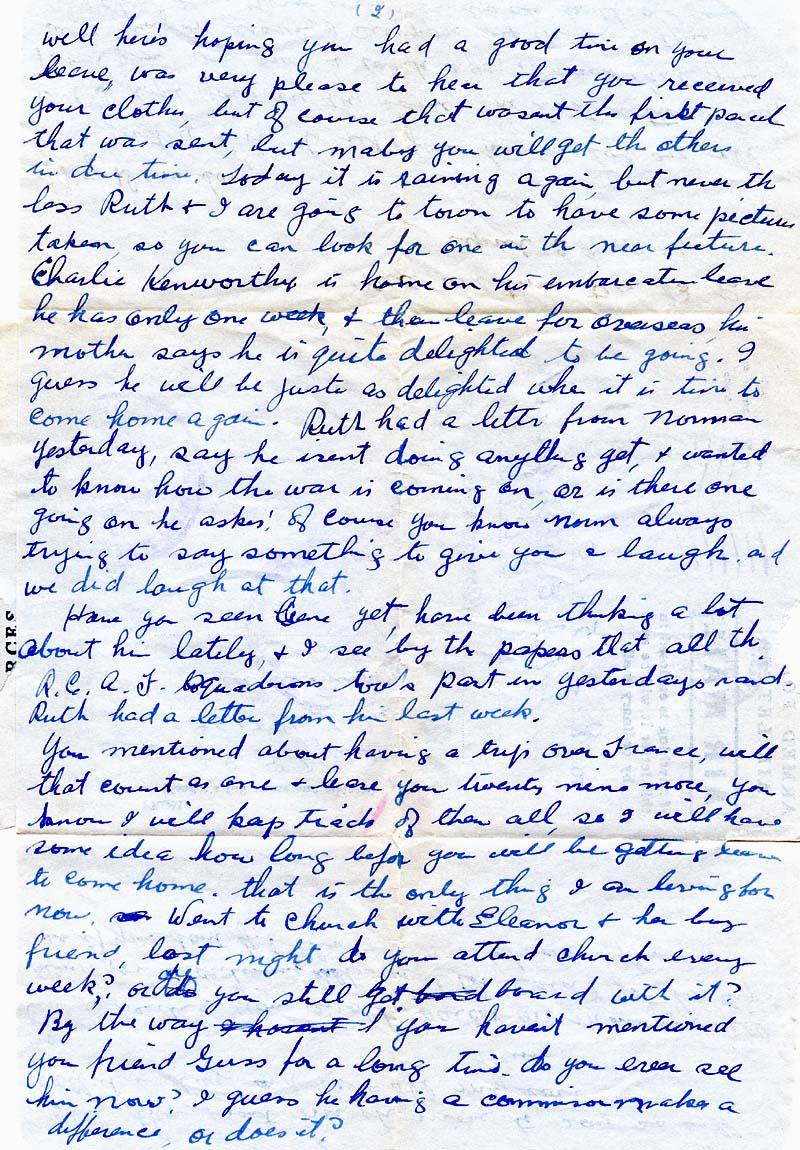 (2)
well here's hoping you had a good time on your
leave, was very please to hear that you received
your clothes, but of course that wasent the first parcel
that was sent, but maby you will get the others
in due time. Today it is raining again, but never the
less Ruth & I are going to town to have some pictures
taken, so you can look for one in th near future.
Charlie Kenworthy is home on his embarcation leave
he has only one week, & then leave for overseas, his
mother says he is quite delighted to be going. I
guess he will be juste as delighted when it is time to
come home again. Ruth had a letter from Norman
yesterday, say he isent doing anything yet, & wanted
to know how the war is coming on, or is there one
going on he askes! of course you know norm always
trying to say something to give you a laugh. and
we did laugh at that.
Have you seen Gene yet, have been thinking a lot
about him lately, & I see by th papers that all th
R.C.A.F. Squadrons took part in yesterdays raid.
Ruth had a letter from him last week.
You mentioned about having a trip over France, will
that count as one & leave you twenty nine more, you
know I will keep track of them all, so I will have
some idea how long befor you will be getting leave
to come home. that is the only thing I am living for
now. Went to church with Eleanor & her boy
friend, last night do you attend church every
week?, or do you still get bord board with it?
By the way I hasent you havent mentioned
you friend Guss for a long time. do you ever see
him now? I guess he having a commison makes a
difference, or does it?
RCES